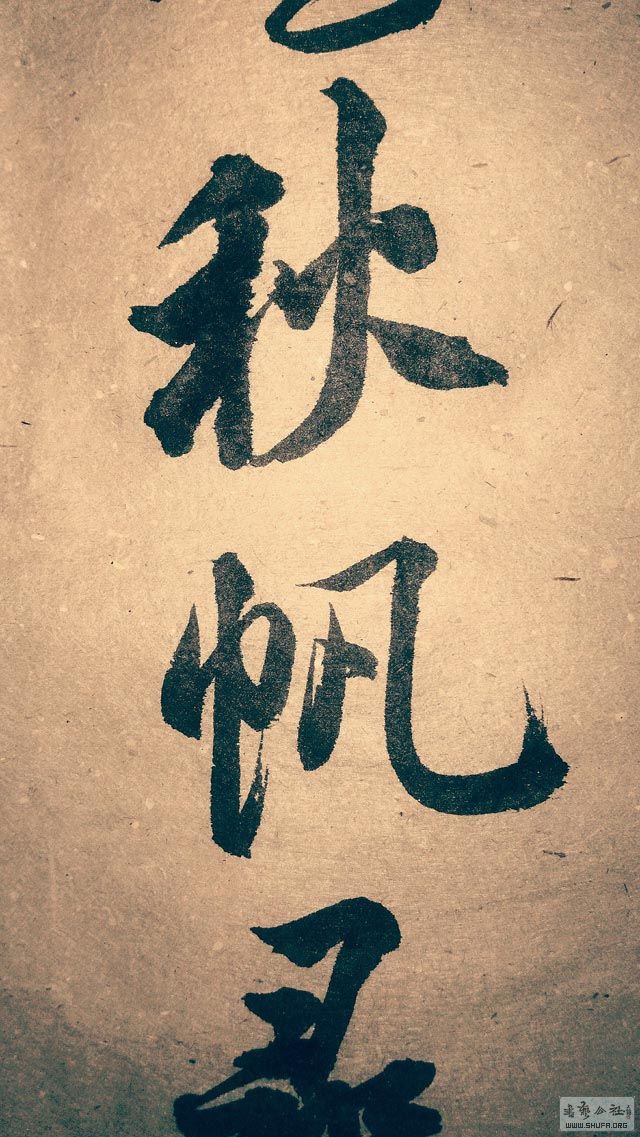 秋帆
書藝公社
WWW.SHUFA.ORG